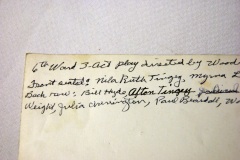 6th Ward 3-Act play directed by Wood
Front seated: Nila Ruth Tingey, Myrna L
Back row: Bill Hyde, Afton Tingey
Weight, Julia Cherrington, Paul Beardall, Wa